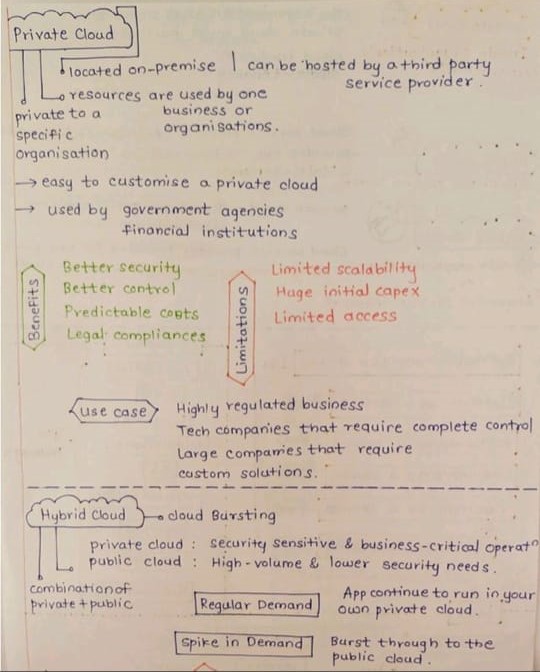 Private Cloud
located on-premise | can be hosted by a third party
service provider.
resources are used by one
business or
organisations.
private to a
specific
organisation
→ easy to customise a private cloud
→ used by government agencies
financial institutions
Benefits
Better security
Better control
Predictable costs
Legal compliances
Limitations
Limited scalability
Huge initial capex
Limited access
use case
Highly regulated business
Tech companies that require complete control
Large companies that require
custom solutions.
Hybrid Cloud
cloud Bursting
private cloud : security sensitive & business-critical operatⁿ
public cloud : High-volume & lower security needs.
combination of
private + public
Regular Demand
App continue to run in your
own private cloud.
Spike in Demand
Burst through to the
public cloud.